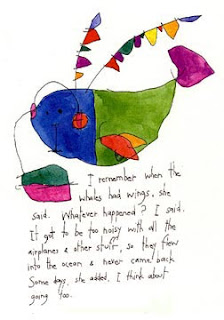 I remember when the
whales had wings, she
said. Whatever happened? I said.
It got to be too noisy with all the
airplanes & other stuff, so they flew
into the ocean & never came back
Some days, she added, I think about
going too.